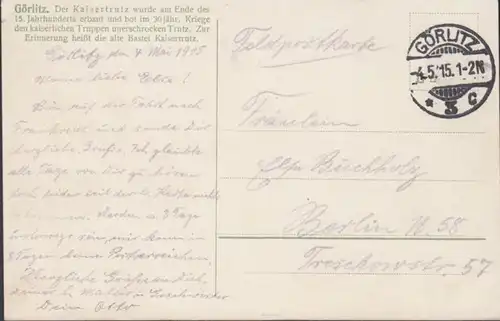 Görlitz. Der Kaisertrutz wurde am Ende des
15. Jahrhunderts erbaut und bot im 30jähr. Kriege
den kaiserlichen Truppen unerschrocken Trutz. Zur
Erinnerung heißt die alte Bastei Kaisertrutz.
Görlitz, den 4 Mai 1915
Meine liebe
Bin auf der Fahrt nach
Frankreich und sende Dir
herzliche Grüße. Ich glaubte
alle Tage von Dir zu hören
doch leider seit der Karte nichts
bekommen. Werden 3 Tage
unterwegs sein, wir kommen in
3 Tagen
Herzliche Grüße an Dich,
deiner l. Mutter u. Geschwister
Dein Otto
Feldpostkarte
GÖRLITZ
4.5.15.1-2N
* 3 c
Fräulein
Buchholz
Berlin N. 58
Treskowstr. 57